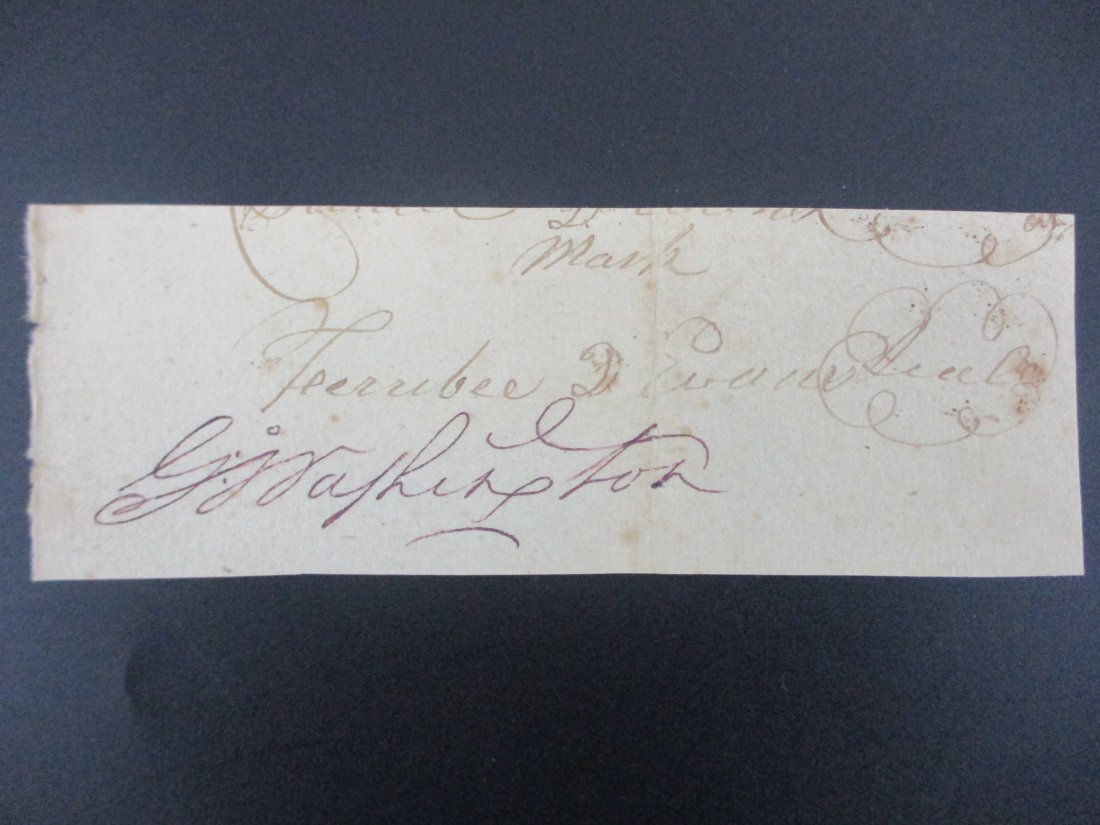 Mark
Ferribee D Evans Seal
G:Washington